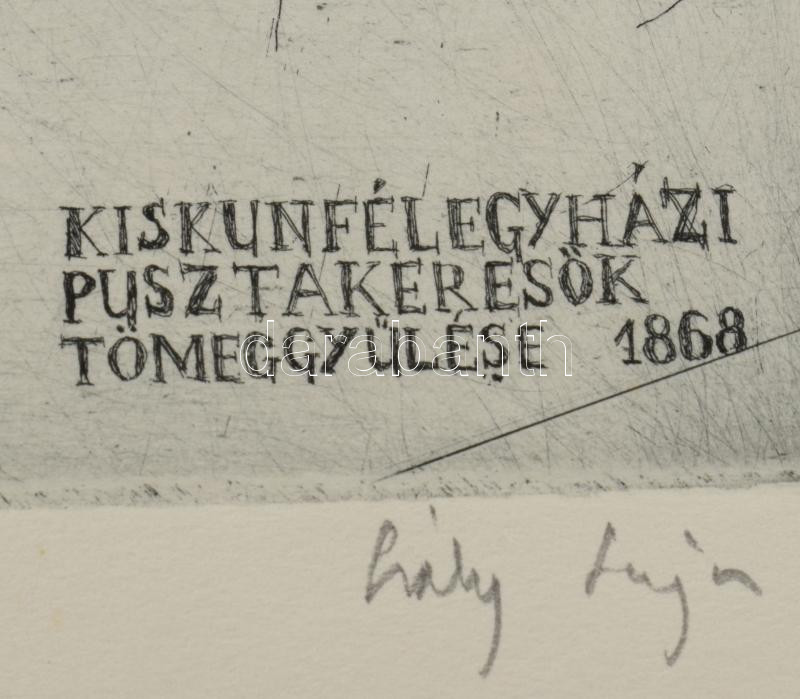 KISKUNFÉLEGYHÁZI
PUSZTAKERESŐK
TÖMEGGYŰLÉSE 1868
darabanth